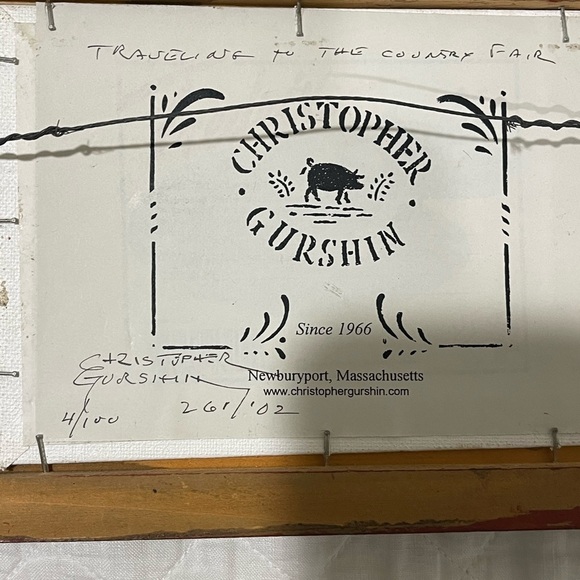 TRAVELING TO THE COUNTRY FAIR
CHRISTOPHER
GURSHIN
Since 1966
CHRISTOPHER
GURSHIN
Newburyport, Massachusetts
www.christophergurshin.com
4/100 261/'02